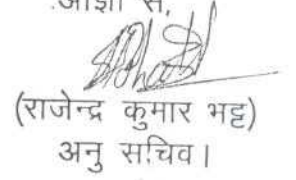 आज्ञा से,
(राजेन्द्र कुमार भट्ट)
अनु सचिव।